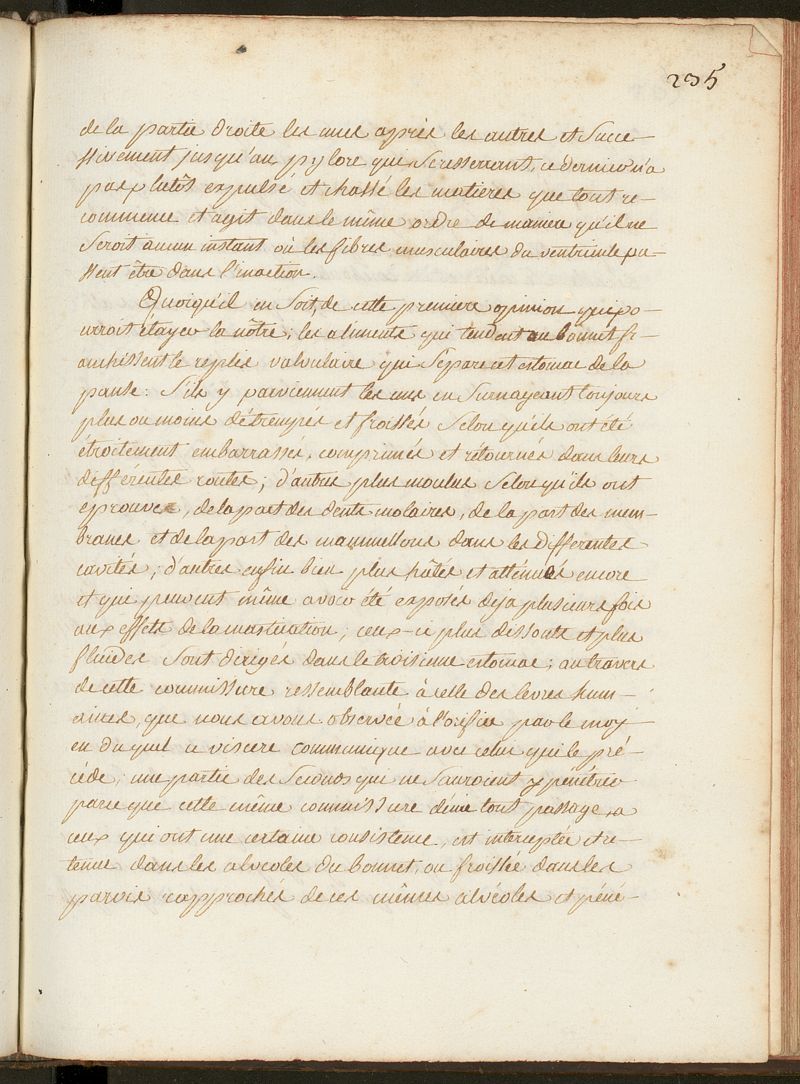 235
de la partie droite les unes après les autres et succe-
ssivement jusqu'au pylore qui se resserrant, ce dernier n'a
pas plutôt expulsé et chassé les matieres que tout re-
commence et agit dans le même ordre de maniere qu'il ne
seroit aucun instant où les fibres musculaires du ventricule pu-
ssent être dans l'inaction.
Quoiqu'il en soit, de cette premiere opinion qui po-
urroit étayer la nôtre; les aliments qui tendent au bonnet fr-
anchissent le replis valvulaire qui sépare cet estomac de la
panse: s'ils y parviennent les uns en surnageant toujours
plus ou moins détrempés et froissés selon qu'ils ont été
étroitement embarrassés, comprimés et rétournés dans leurs
différentes routes; d'autres plus moulus selon qu'ils ont
eprouvé, de la part des dents molaires, de la part des mem-
branes et de la part des mammellons dans les differentes
cavités; d'autres enfin bien plus hâtés et atténués encore
et qui peuvent même avoir été exposés deja plusieurs fois
aux effets de la mastication; ceux-ci plus dissouts et plus
fluides sont dirigés dans le troisieme estomac; au travers
de cette commissure ressemblante à celle des levres hum-
aines, que nous avons observée à l'orifice par le moy-
en duquel ce viscere communique avec celui qui le pré-
céde; une partie des seconds qui ne sauroient y pénétrer
parce que cette même commissure dénie tout passage a
ceux qui ont une certaine consistence, est interceptée et re-
tenue dans les alvéoles du bonnet, ou froissée dans les
parois rapprochés de ces mêmes alvéoles et péné-